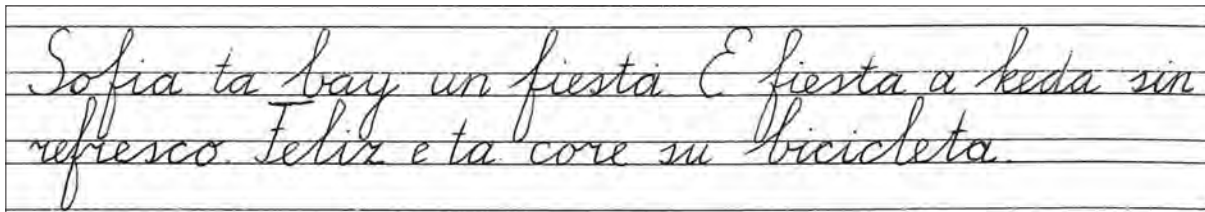 Sofia ta bay un fiesta. E fiesta a keda sin
refresco. Feliz e ta core su bicicleta.